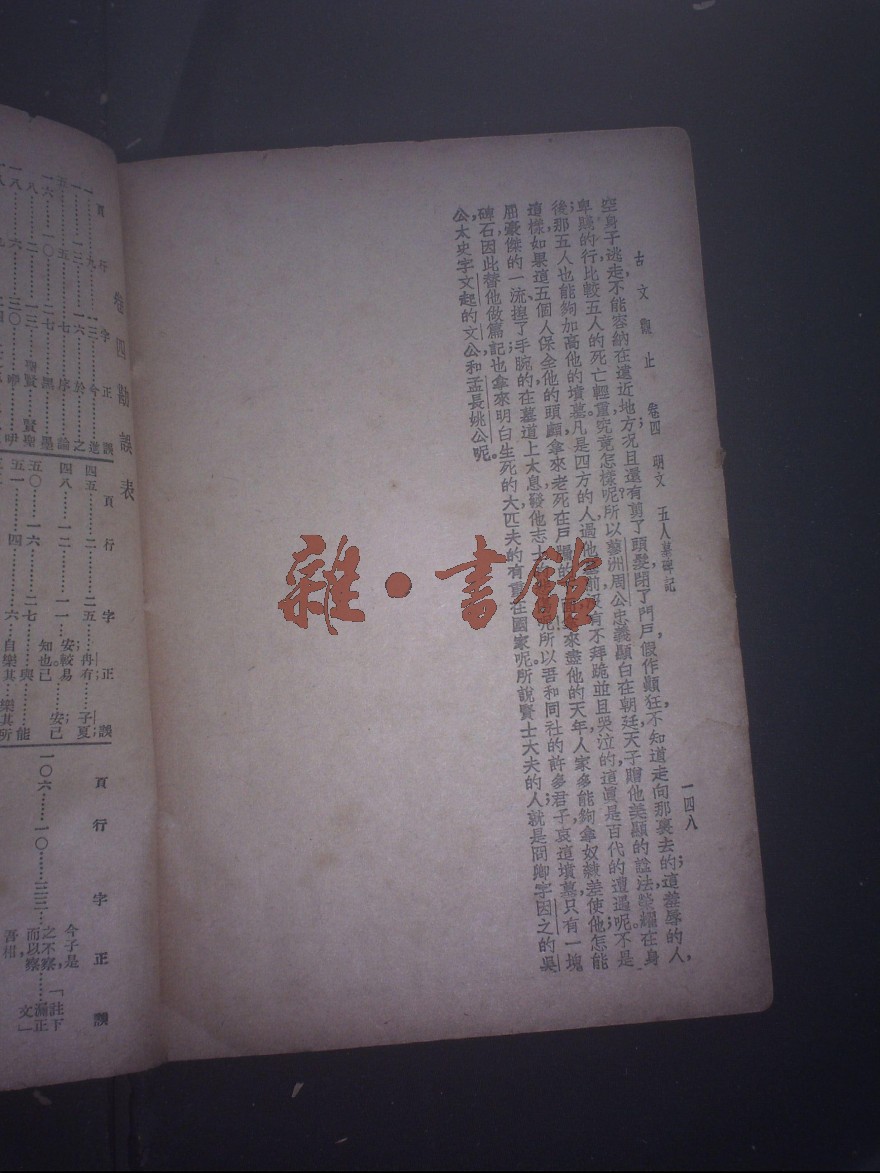 古文觀止 卷四 明文 五人墓碑記 一四八
空身子逃走,不能容納在遠近地方;況且還有剪了頭髮,閉了門戶,假作顛狂,不知道走向那裏去的;這羞辱的人,
卑賤的行,比較五人的死亡,輕重究竟怎樣呢?所以蓼洲周公忠義顯白在朝廷,天子贈他美顯的諡法,榮耀在身
後;那五人也能夠加高他的墳墓,凡是四方的人,過他前沒有不拜跪並且哭泣的,這眞是百代的遭遇呢;不是
這樣,如果這五個人保全他的頭顱,拿來老死在戶牖的來盡他的天年,人家多能夠拿奴隸差使他,怎能
屈豪傑的一流,揑了手腕的,在墓道上太息,發他志士呢?所以吾和同社的許多君子,哀這墳墓,只有一塊
碑石,因此替他做篇記;也拿來明白生死的大,匹夫的有重在國家呢。所說賢士大夫的人,就是冏卿字因之的吳
公,太史字文起的文公,和孟長姚公呢。
雜·書館
卷四勘誤表
頁 行 字 正 誤
頁 行 字 正 誤
四五……二……二五……冉有;子夏;
四八……一二……一一……安較易知也已;安已
五〇……一六……二七……與 能
五一……四……六……自樂其 樂其所
頁 行 字 正 誤
一〇六……一〇……三三……今子是之不察,而以察吾相,「註下漏正文」